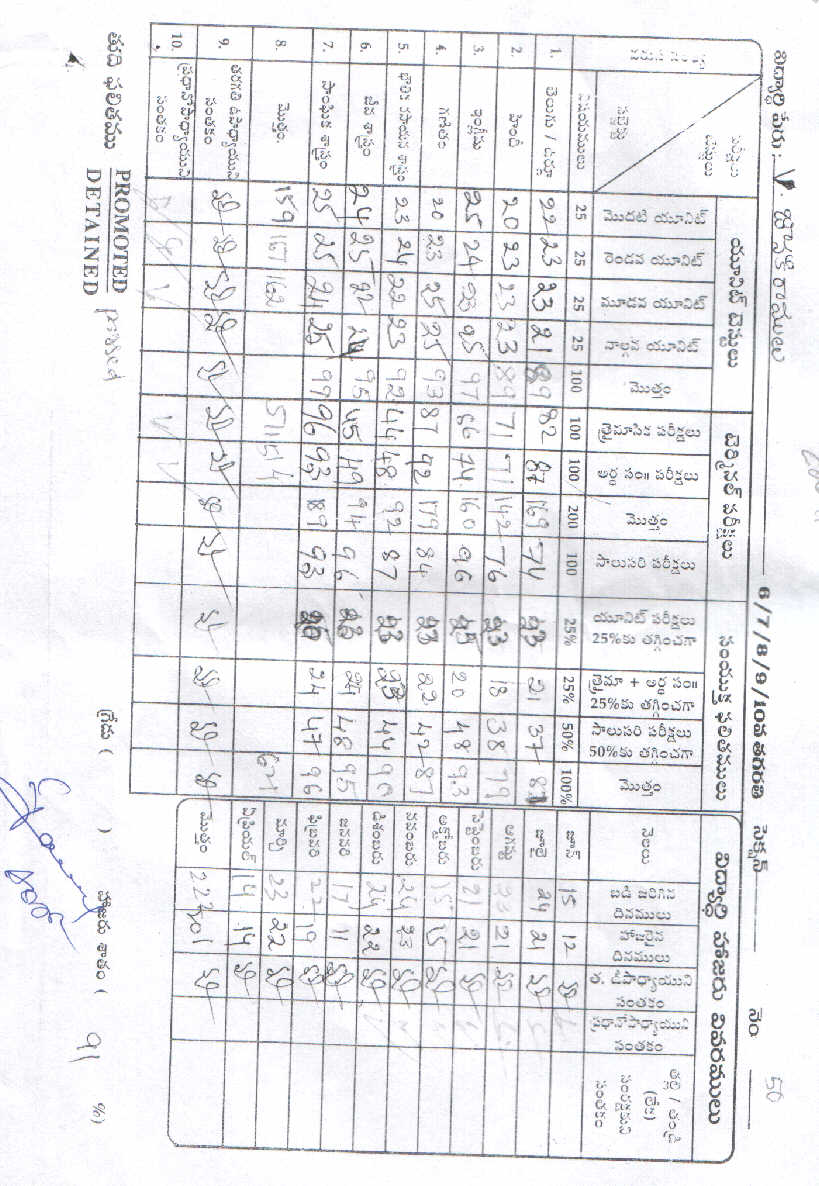 విద్యార్థి పేరు: V. జానకి రాములు 6/7/8/9/10వ తరగతి సెక్షన్ నెం 50
వరుస సంఖ్య పరీక్షలు టెస్టులు సబ్జెక్టు యూనిట్ టెస్టులు టెర్మినల్ పరీక్షలు సంయుక్త ఫలితములు
మొదటి యూనిట్ రెండవ యూనిట్ మూడవ యూనిట్ నాల్గవ యూనిట్ మొత్తం త్రైమాసిక పరీక్షలు అర్ధ సం॥ పరీక్షలు మొత్తం సాలుసరి పరీక్షలు యూనిట్ పరీక్షలు 25%కు తగ్గించగా త్రైమా + అర్ధ సం॥ 25%కు తగ్గించగా సాలుసరి పరీక్షలు 50%కు తగ్గించగా మొత్తం
విషయములు 25 25 25 25 100 100 100 200 100 25% 25% 50% 100%
1. తెలుగు / ఉర్దూ 22 23 23 21 89 82 87 169 74 23 21 37 81
2. హిందీ 20 23 23 23 89 71 71 142 76 23 18 38 79
3. ఇంగ్లీషు 25 24 23 25 97 86 74 160 96 25 20 48 93
4. గణితం 20 23 25 25 93 87 92 179 84 23 22 42 87
5. భౌతిక రసాయన శాస్త్రం 23 24 22 23 92 44 48 92 87 23 23 44 90
6. జీవ శాస్త్రం 24 25 22 24 95 45 49 94 96 23 24 48 95
7. సాంఘిక శాస్త్రం 25 25 24 25 99 96 93 189 93 25 24 47 96
8. మొత్తం. 159 167 162 511 514
9. తరగతి ఉపాధ్యాయుని సంతకం
10. ప్రధానోపాధ్యాయుని సంతకం
విద్యార్థి హాజరు వివరములు
నెలలు బడి జరిగిన దినములు హాజరైన దినములు త. ఉపాధ్యాయుని సంతకం ప్రధానోపాధ్యాయుని సంతకం తల్లి / తండ్రి (లేక) సంరక్షకుని సంతకం
జూన్ 15 12
జూలై 24 21
ఆగష్టు 23 21
సెప్టెంబరు 21 21
అక్టోబరు 15 15
నవంబరు 24 23
డిశంబరు 24 22
జనవరి 17 11
ఫిబ్రవరి 22 19
మార్చి 23 22
ఏప్రియల్ 14 14
మొత్తం 222 201
తుది ఫలితము PROMOTED passed గ్రేడు ( ) హాజరు శాతం ( 91 %)
DETAINED